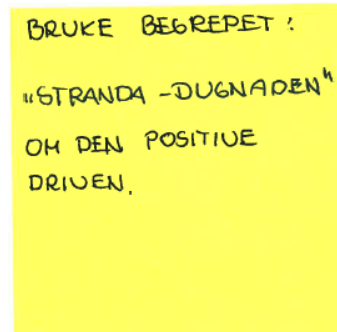 BRUKE BEGREPET:
"STRANDA-DUGNADEN"
OM DEN POSITIVE
DRIVEN.